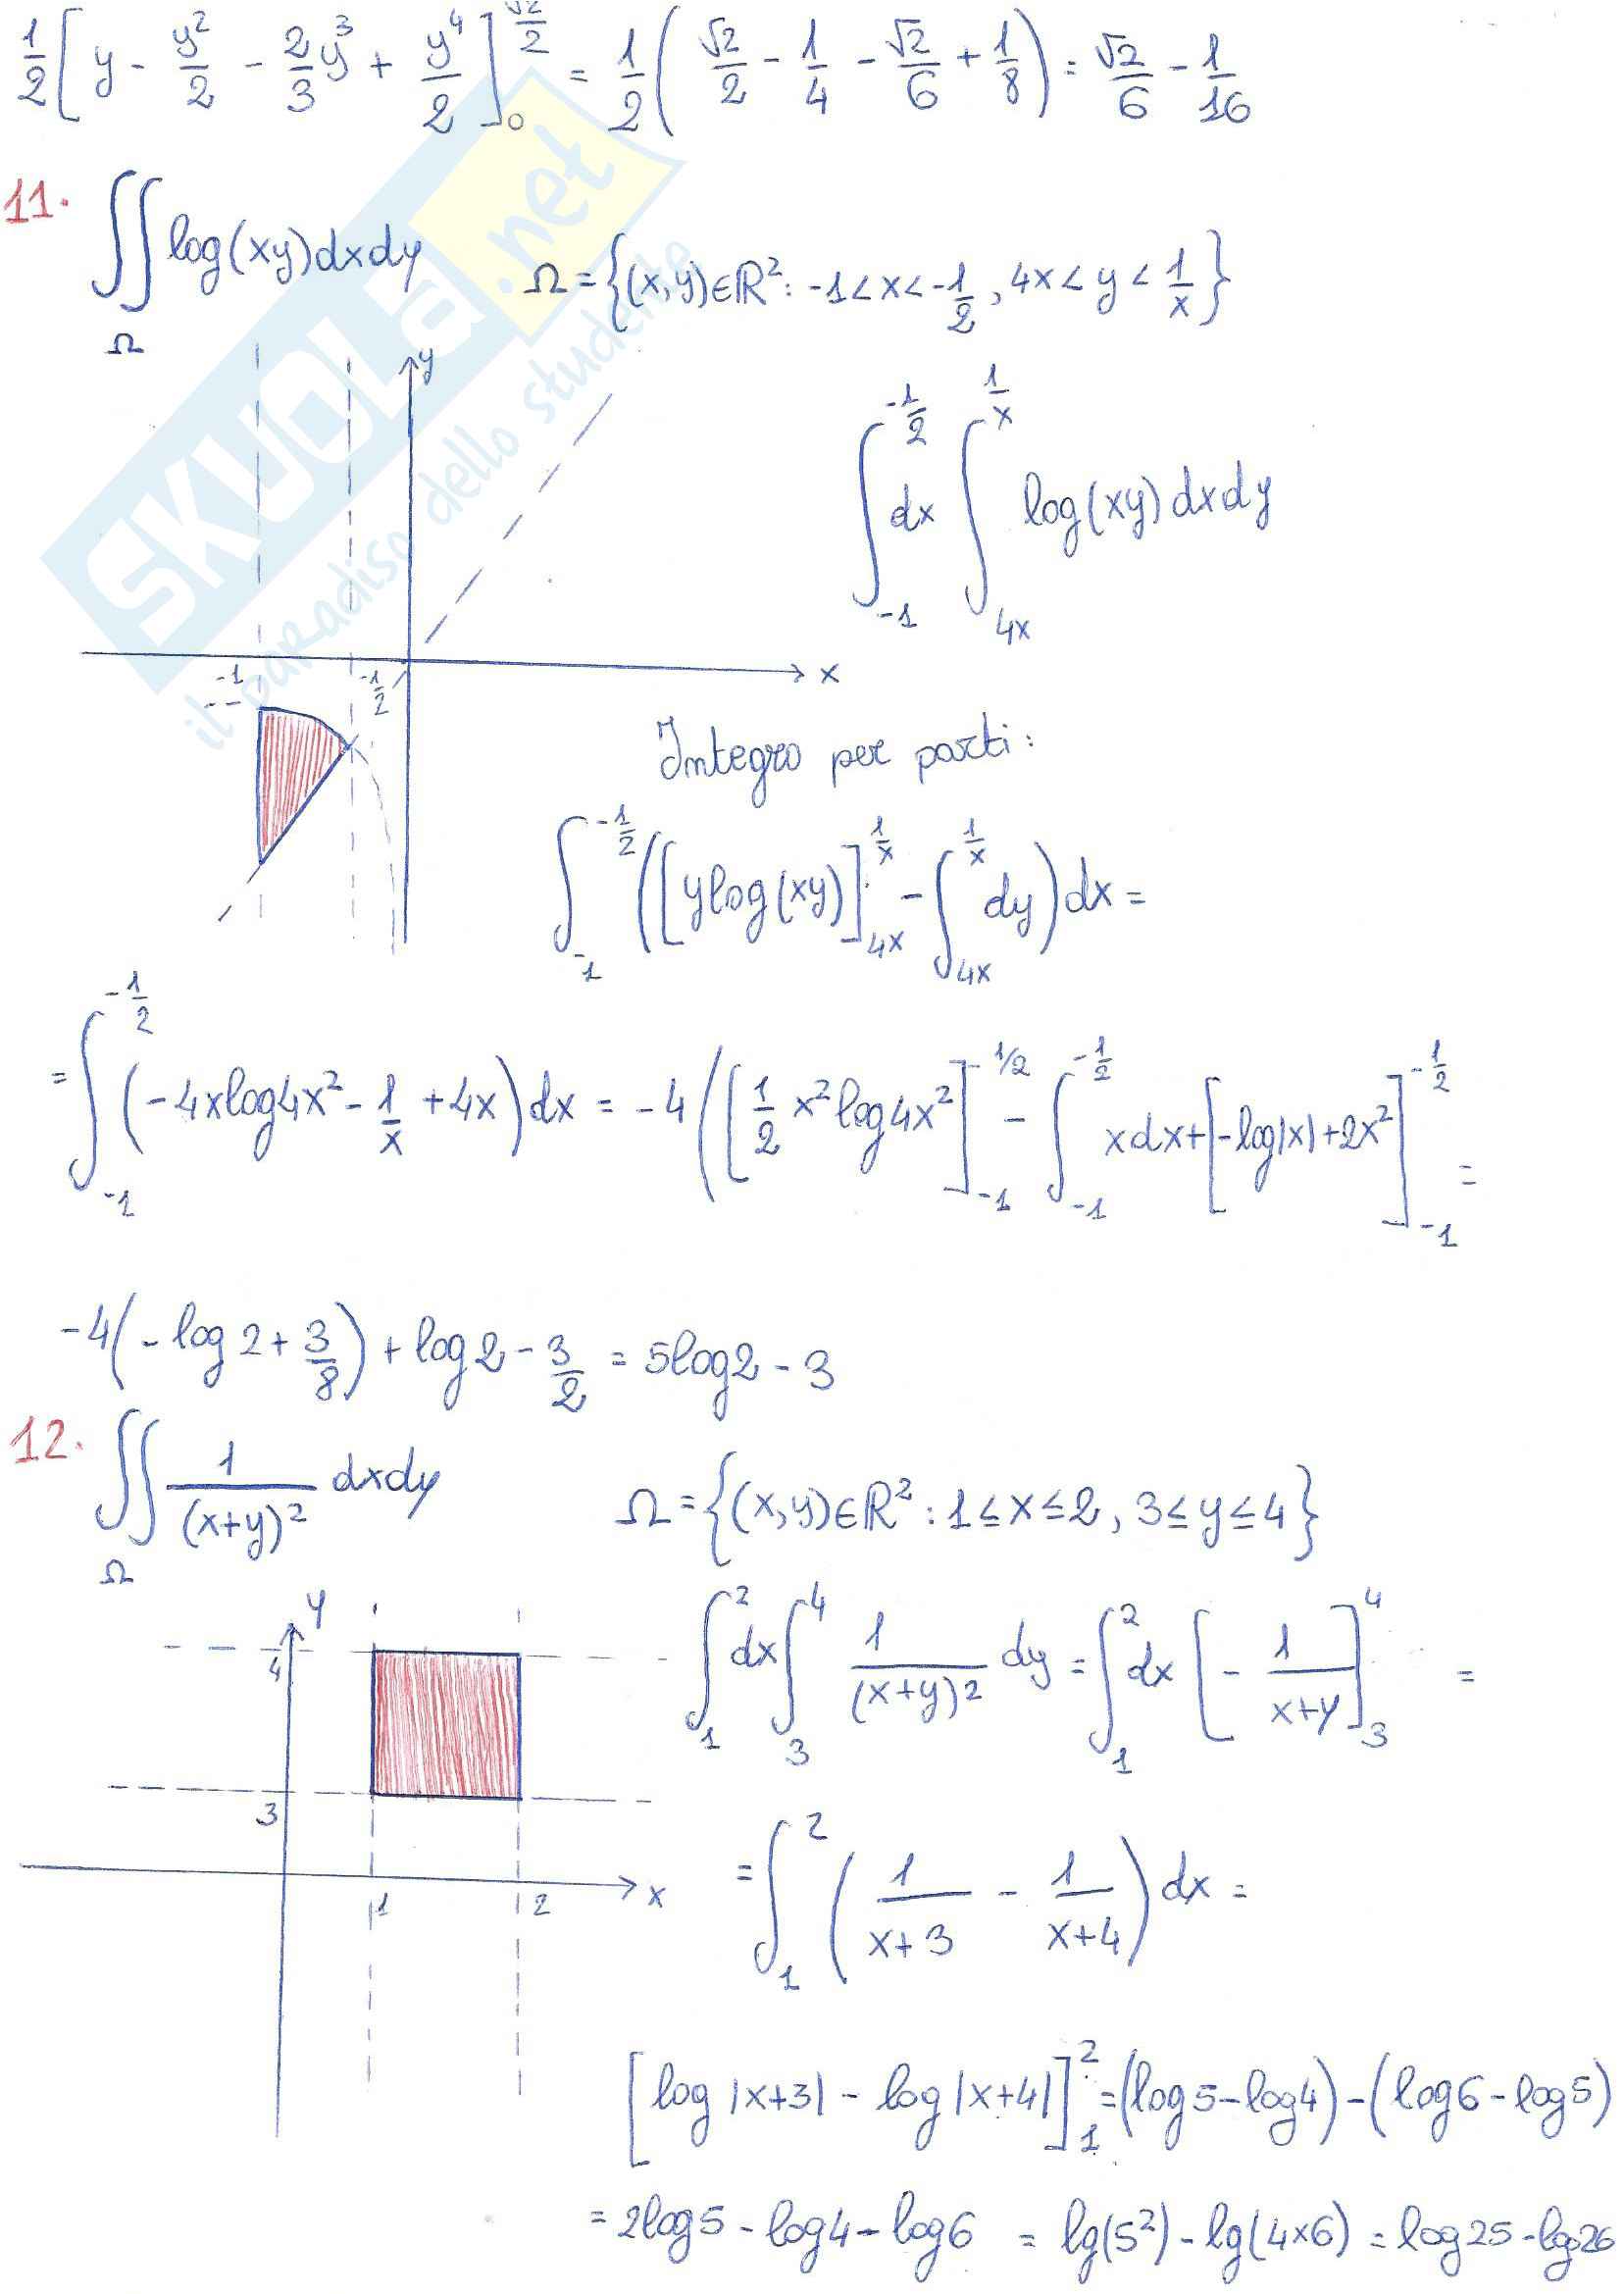 1/2 [ y - y²/2 - 2/3 y³ + y⁴/2 ]₀^(√2/2) = 1/2 ( √2/2 - 1/4 - √2/6 + 1/8 ) = √2/6 - 1/16
11. ∬_Ω log(xy)dxdy Ω = {(x,y)∈ℝ² : -1 < x < -1/2 , 4x < y < 1/x}
SKUOLA.net
il paradiso dello studente
y
∫_{-1}^{-1/2} dx ∫_{4x}^{1/x} log(xy) dxdy
-1 -1/2 x
Integro per parti :
∫_{-1}^{-1/2} ( [ylog(xy)]_{4x}^{1/x} - ∫_{4x}^{1/x} dy ) dx =
= ∫_{-1}^{-1/2} ( -4xlog4x² - 1/x + 4x ) dx = -4 ( [ 1/2 x² log4x² ]_{-1}^{-1/2} - ∫_{-1}^{-1/2} x dx + [ -log|x| + 2x² ]_{-1}^{-1/2} =
-4( -log2 + 3/8 ) + log2 - 3/2 = 5log2 - 3
12. ∬_Ω 1/(x+y)² dxdy Ω = {(x,y)∈ℝ² : 1≤x≤2 , 3≤y≤4}
y
4
∫₁² dx ∫₃⁴ 1/(x+y)² dy = ∫₁² dx [ - 1/(x+y) ]₃⁴ =
3
1 2 x
= ∫₁² ( 1/(x+3) - 1/(x+4) ) dx =
[ log|x+3| - log|x+4| ]₁² = (log5-log4) - (log6-log5)
= 2log5 - log4 - log6 = lg(5²) - lg(4×6) = log25 - lg26